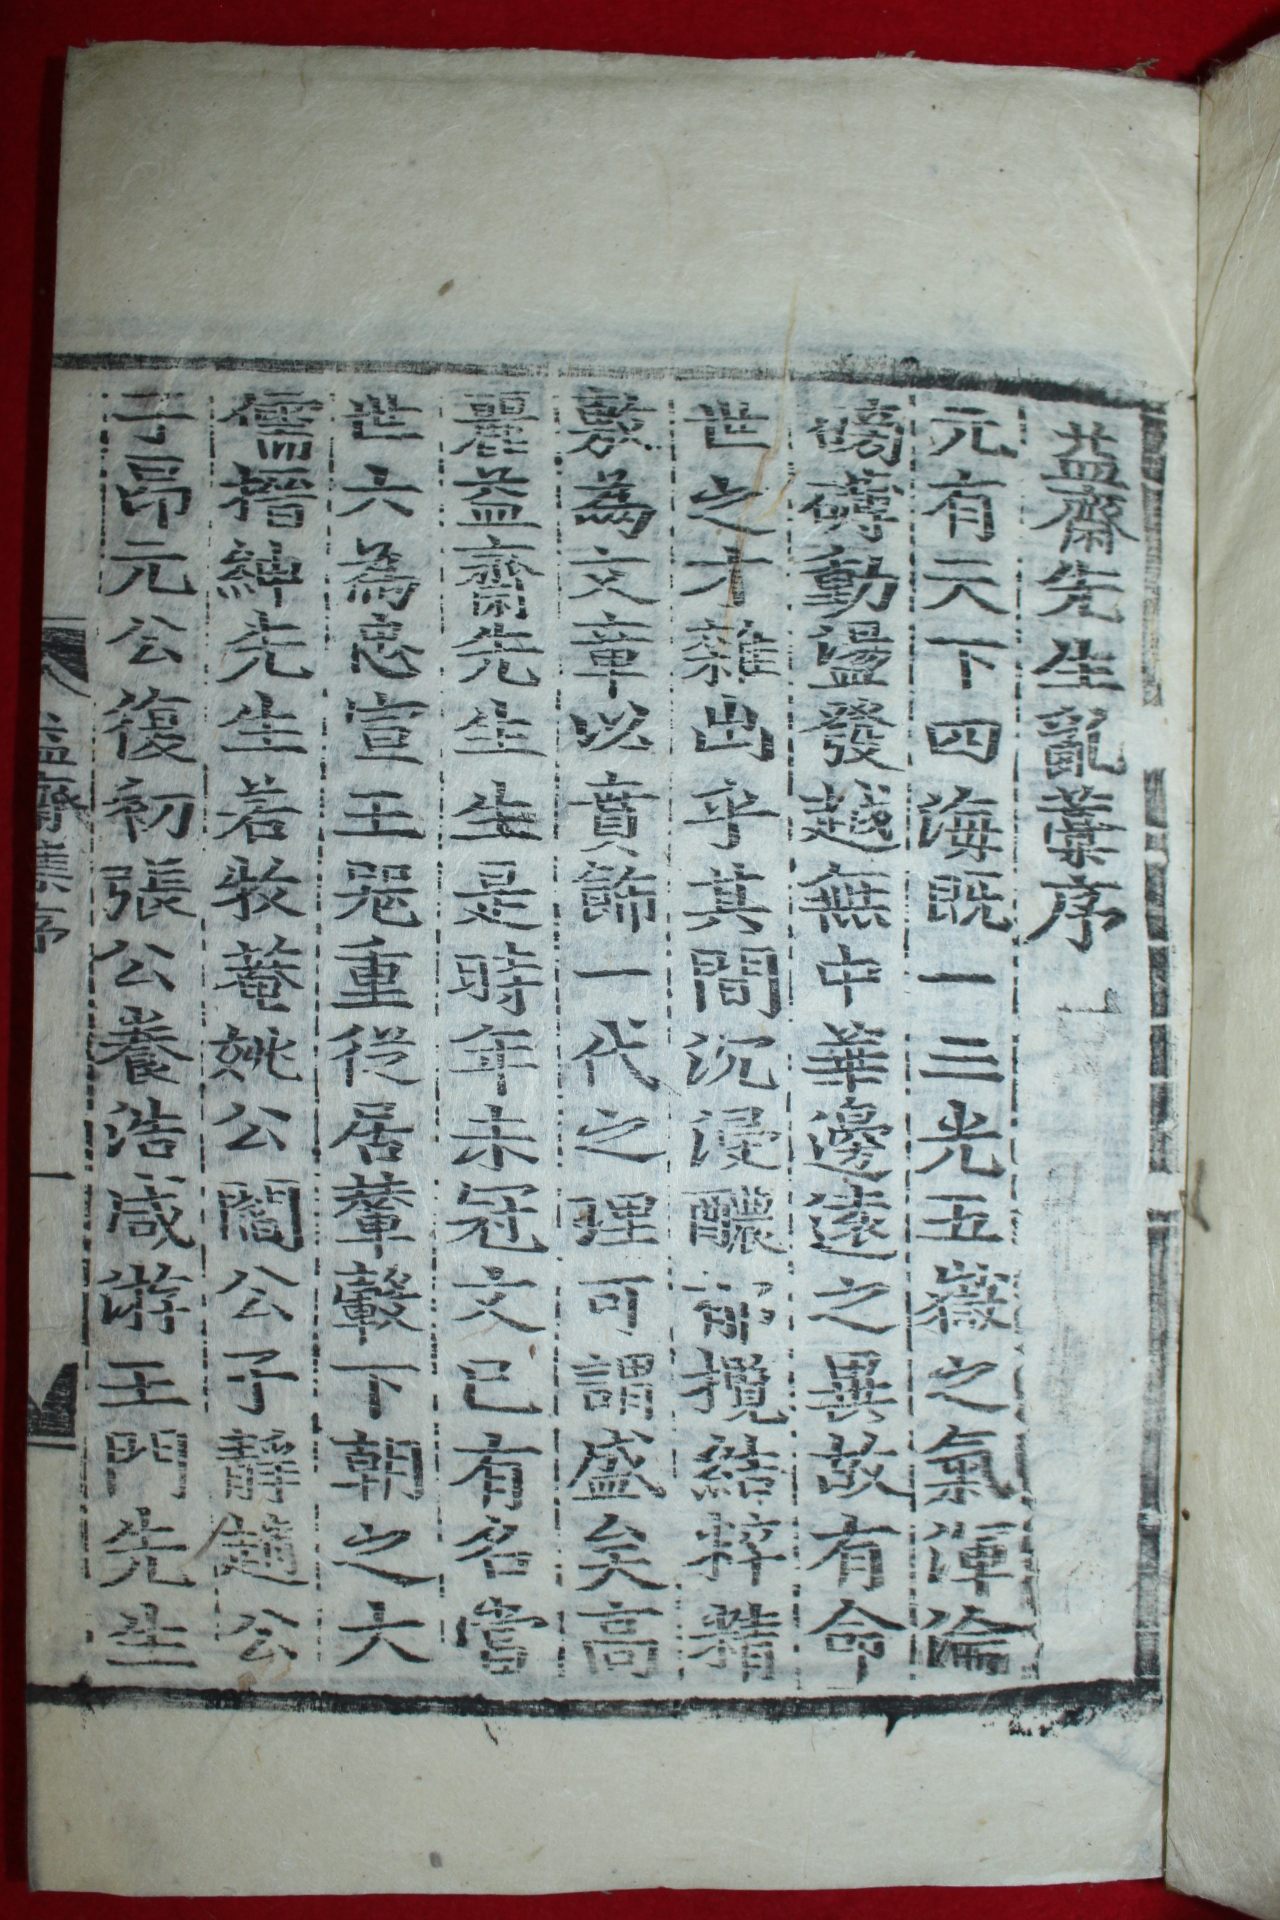 益齋先生亂藁序
元有天下四海既一三光五嶽之氣渾淪
磅礴動盪發越無中華邊遠之異故有命
世之才雜出乎其間沉浸醲郁攬結粹精
敷為文章以賁飾一代之理可謂盛矣高
麗益齋先生生是時年未冠文已有名當
世六為忠宣王器重從居輦轂下朝之大
儒搢紳先生若牧菴姚公閻公子靜趙公
子昻元公復初張公養浩咸游王門先生
益齋集序
一